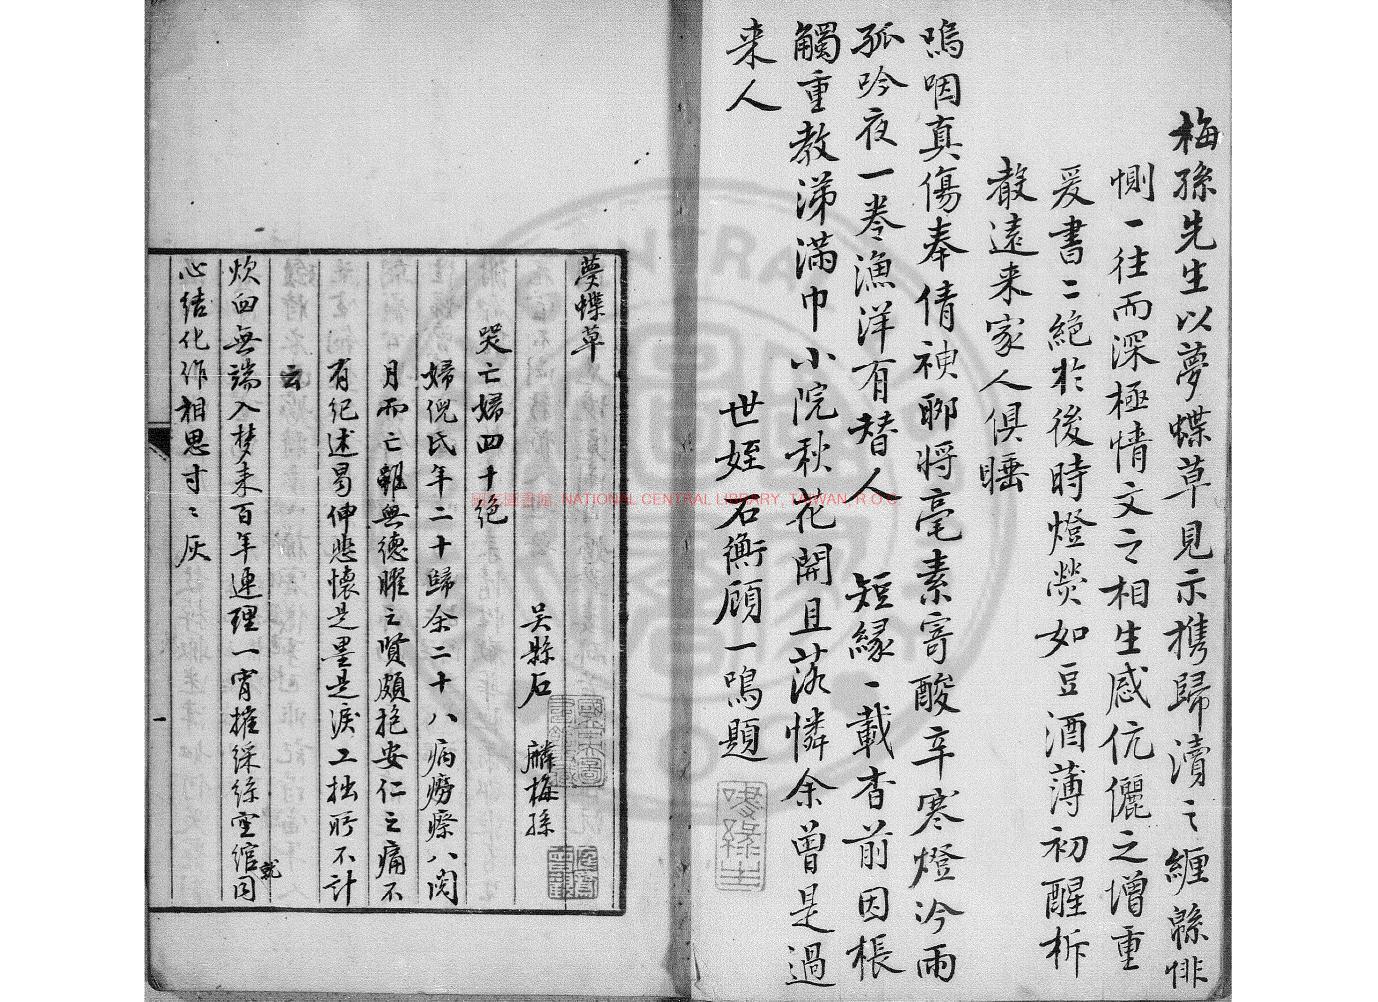 梅孫先生以夢蝶草見示携歸瀆之纏緜悱
惻一往而深極情文之相生感伉儷之增重
爰書二絕於後時燈熒如豆酒薄初醒柝
聲遠来家人俱睡
嗚咽真傷奉倩神聊将毫素寄酸辛寒燈冷雨
孤吟夜一卷漁洋有替人 短緣一載杳前因棖
觸重教涕滿巾小院秋花開且落憐余曾是過
来人
世姪石衡顧一鳴題
夢蝶草
吴縣石 麟梅孫
哭亡婦四十絕
婦倪氏年二十歸余二十八病癆瘵八閱
月而亡雖無德曜之賢頗抱安仁之痛不
有紀述曷伸悲懷是墨是淚工拙所不計
云
炊臼無端入梦来百年連理一宵摧綵絲空綰同
就
心結化作相思寸寸灰
一
國家圖書館, NATIONAL CENTRAL LIBRARY, TAIWAN, R.O.C